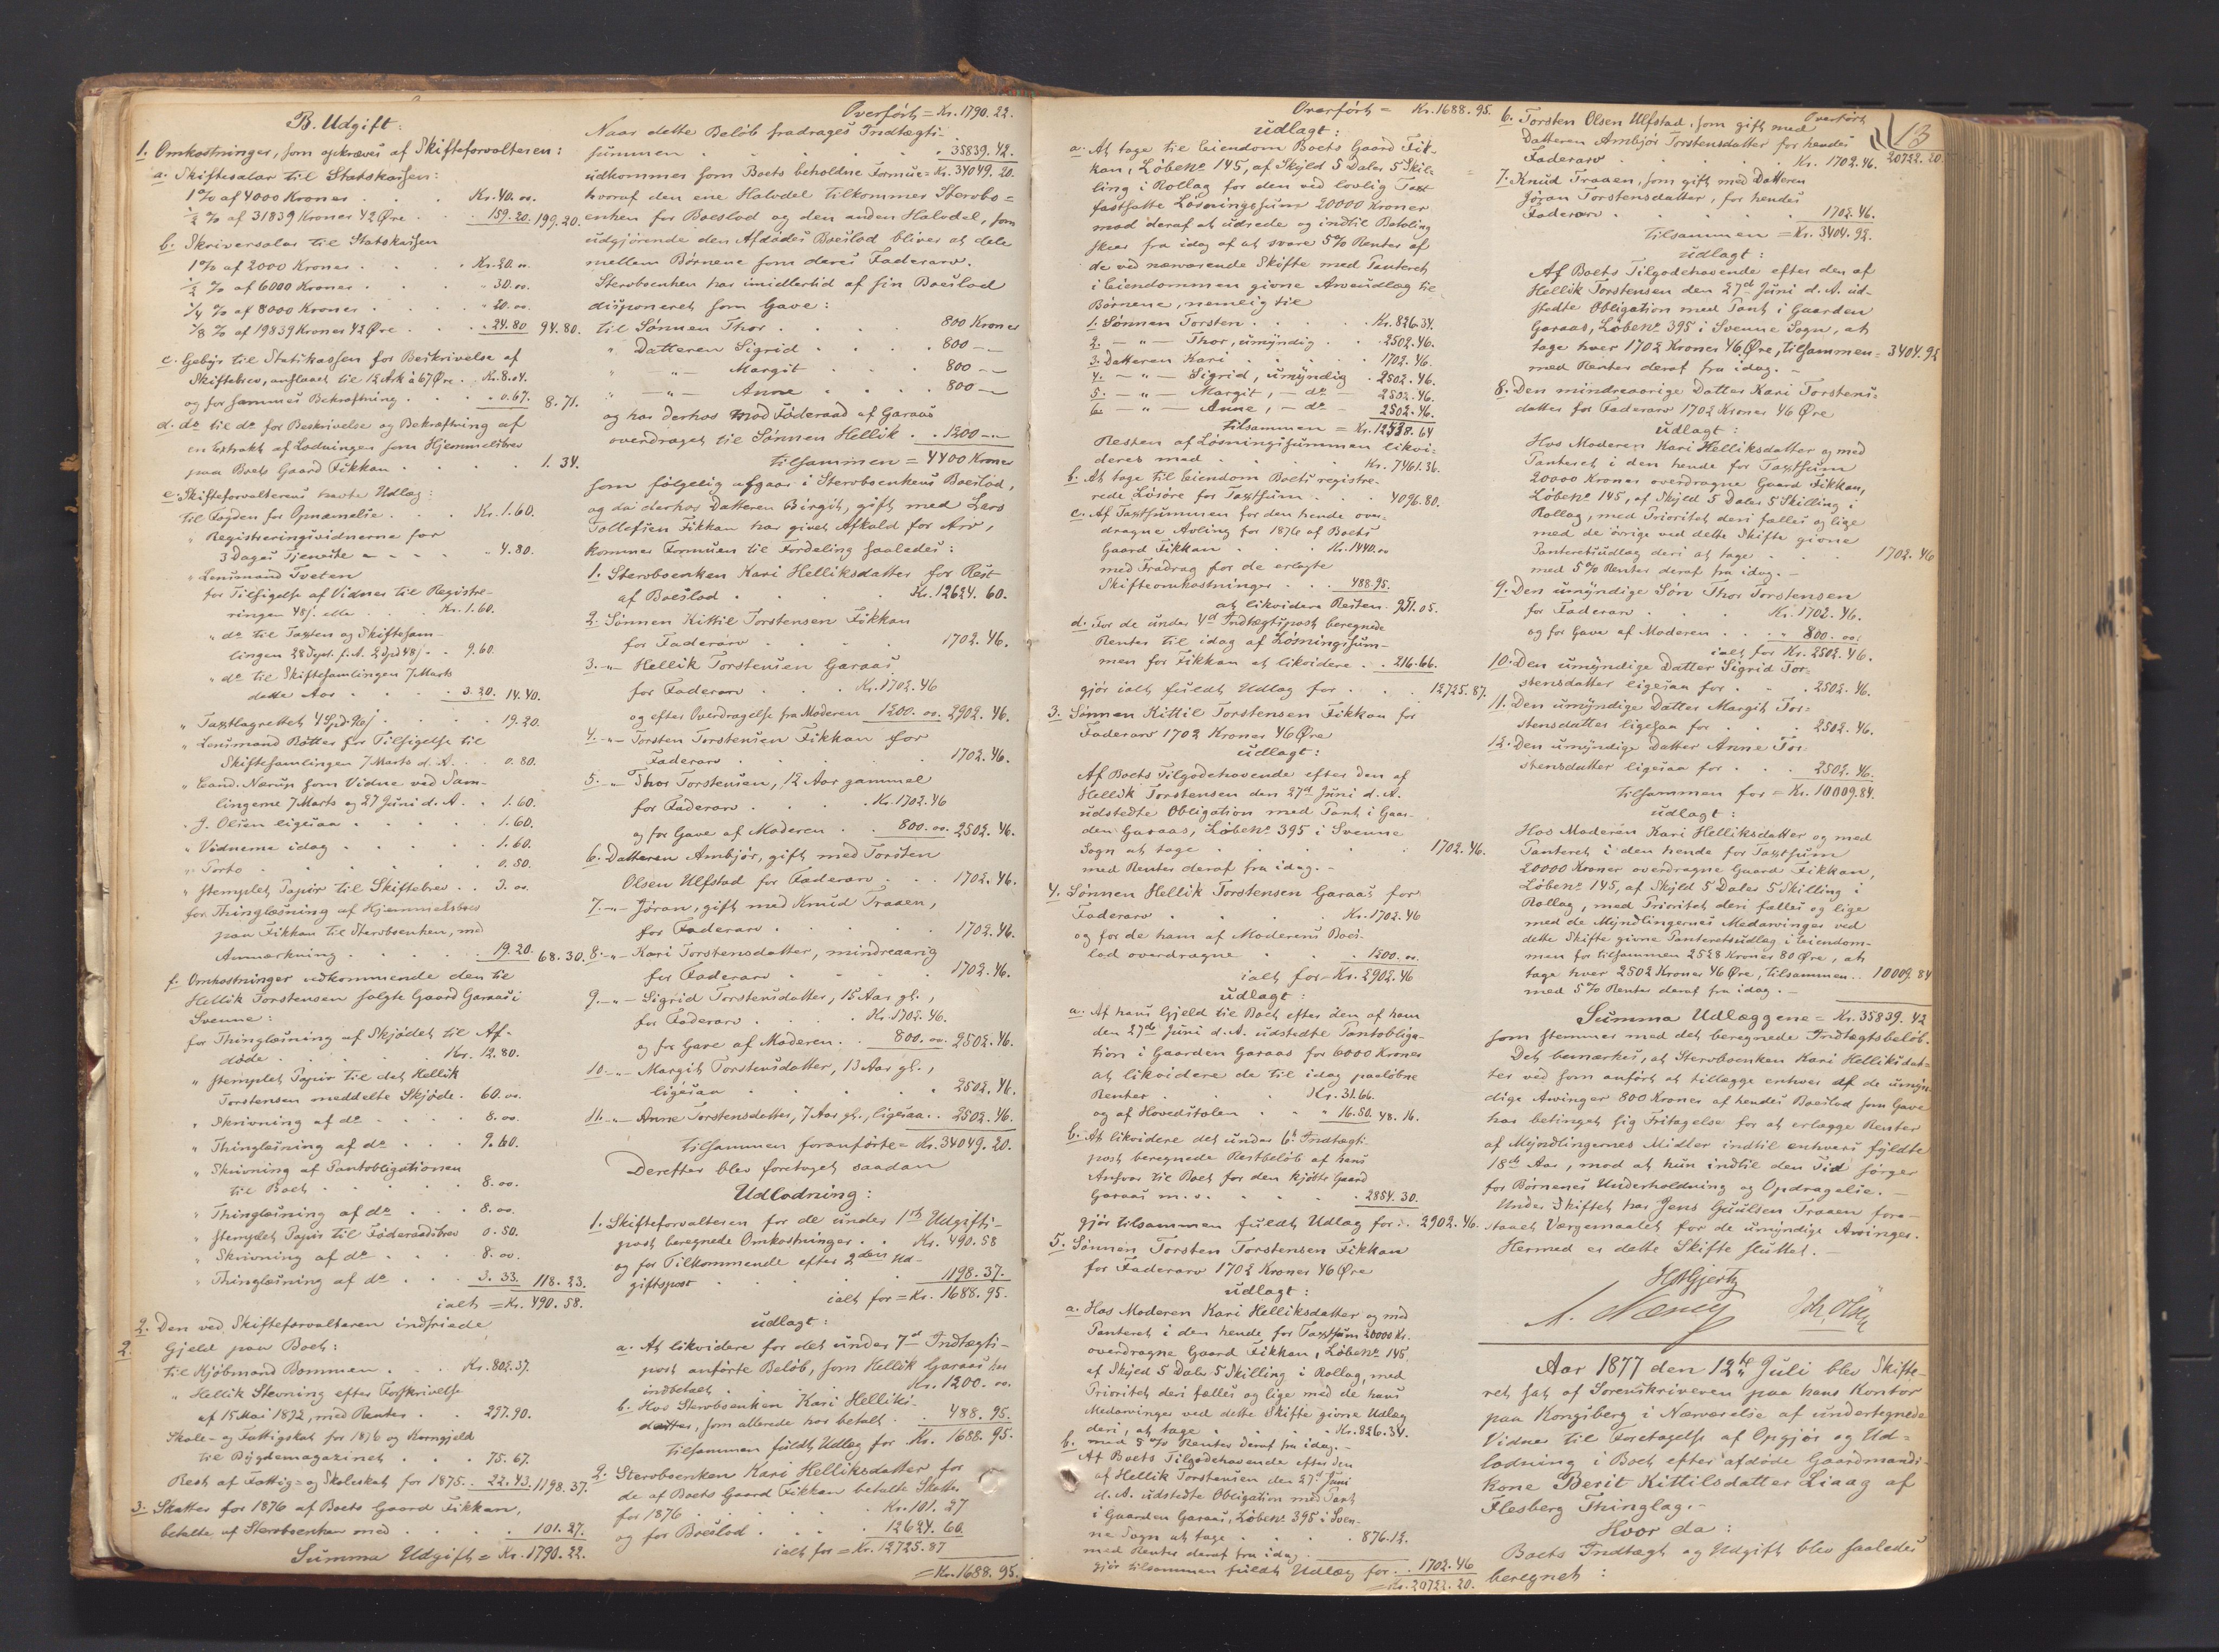 B. Udgift:
1. Omkostninger, som opkræves af Skifteforvalteren:
a. Skiftesalar til Statskassen:
1 % af 4000 Kroner . . . Kr. 40. 00.
½ % af 31839 Kroner 42 Øre . . . 159. 20. 199. 20.
b. Skriversalar til Statskassen
1 % af 2000 Kroner . . . Kr. 20. „.
½ % af 6000 Kroner . . . „ 30. 00.
¼ % af 8000 Kroner . . . „ 20. 00.
⅛ % af 19839 Kroner 42 Øre . . . 24. 80. 94. 80.
c. Gebyr til Statskassen for Beskrivelse af
Skiftebrev, anslaaet til 12 Ark à 67 Øre . Kr. 8. 04.
og for sammes Bekræftning . . . 0. 67. 8. 71.
d. do til do for Beskrivelse og Bekræftning af
en Extrakt af Lodningen som Hjemmelsbrev
paa Boets Gaard Fikkan . . . 1. 34.
e. Skifteforvalterens havte Udlæg:
til Fogden for Opnævnelse . . Kr. 1. 60.
„ Registreringsvidnerne for
3 Dages Tjeneste . . . „ 4. 80.
„ Lensmand Tveten
for Tilsigelse af Vidner til Registre-
ringen 48 s. eller . . Kr. 1. 60.
„ do til Taxten og Skiftesam-
lingen 28 Sept. f. A. 2 Spd 48 s. . 9. 60.
„ do til Skiftesamlingen 7 Marts
dette Aar . . . 3. 20. 14. 40.
„ Taxtlagrettet 4 Spd. 96 s. . . 19. 20.
„ Lensmand Bøtter for Tilsigelse til
Skiftesamlingen 7 Marts d. A. . . 0. 80.
„ Cand. Nærup som Vidne ved Sam-
lingerne 7 Marts og 27 Juni d. A. . 1. 60.
„ J. Olsen ligesaa . . . 1. 60.
„ Vidnerne idag . . . 1. 60.
„ Porto . . . 0. 50.
„ stemplet Papir til Skiftebrev . . 3. 00.
for Thinglæsning af Hjemmelsbrev
paa Fikkan til Stervboenken, med
Anmærkning . . . 19. 20. 68. 30.
f. Omkostninger vedkommende den til
Hellik Torstensen solgte Gaard Garaas i
Svenne:
for Thinglæsning af Skjødet til Af-
døde . . . Kr. 12. 80.
„ stemplet Papir til det Hellik
Torstensen meddelte Skjøde . 60. 00.
„ Skrivning af do . . . 8. 00.
„ Thinglæsning af do . . . 9. 60.
„ Skrivning af Pantobligationen
til Boet . . . 8. 00.
„ Thinglæsning af do . . . 8. 00.
„ stemplet Papir til Føderaadsbrev 0. 50.
„ Skrivning af do . . . 8. 00.
„ Thinglæsning af do . . . 3. 33. 118. 23.
ialt = Kr. 490. 58.
2. Den ved Skifteforvalteren indfriede
2. Gjeld paa Boet:
til Kjøbmand Bommen . . . Kr. 802. 37.
„ Hellik Stevning efter Forskrivelse
af 15 Mai 1872, med Renter . . 297. 90.
Skole- og Fattigskat for 1876 og Korngjeld
til Bygdemagazinet . . . 75. 67.
Rest af Fattig- og Skoleskat for 1875 . . 22. 43. 1198. 37.
3. Skatter for 1876 af Boets Gaard Fikkan,
betalte af Stervboenken med . . . 101. 27.
Summa Udgift = Kr. 1790. 22.
Overført = Kr. 1790. 22.
Naar dette Beløb fradrages Indtægts-
summen . . . 35839. 42.
udkommer som Boets beholdne Formue = Kr. 34049. 20.
hvoraf den ene Halvdel tilkommer Stervbo-
enken for Boeslod og den anden Halvdel, som
udgjørende den Afdødes Boeslod bliver at dele
mellem Børnene som deres Faderarv.
Stervboenken har imidlertid af sin Boeslod
disponeret som Gave:
til Sønnen Thor . . . 800 Kroner
„ Datteren Sigrid . . . 800 —
„ —„— Margit . . . 800 —
„ —„— Anne . . . 800 —
og har derhos mod Føderaad af Garaas
overdraget til Sønnen Hellik . . 1200 —
tilsammen = 4400 Kroner
som følgelig afgaar i Stervboenkens Boeslod,
og da derhos Datteren Birgit, gift med Lars
Tollefsen Fikkan har givet Afkald for Arv,
kommer Formuen til Fordeling saaledes:
1. Stervboenken Kari Helliksdatter for Rest
af Boeslod . . . Kr. 12624. 60.
2. Sønnen Kittil Torstensen Fikkan
for Faderarv . . . 1702. 46.
3. —„— Hellik Torstensen Garaas
for Faderarv . . . Kr. 1702. 46
og efter Overdragelse fra Moderen 1200. 00. 2902. 46.
4. —„— Torsten Torstensen Fikkan for
Faderarv . . . 1702. 46.
5. —„— Thor Torstensen, 12 Aar gammel
for Faderarv . . . Kr. 1702. 46
og for Gave af Moderen . . 800. 00. 2502. 46.
6. Datteren Ambjør, gift med Torsten
Olsen Ulfstad for Faderarv . . . 1702. 46.
7. —„— Jøran, gift med Knud Traaen,
for Faderarv . . . 1702. 46.
8. —„— Kari Torstensdatter, mindreaarig
for Faderarv . . . 1702. 46.
9. —„— Sigrid Torstensdatter, 15 Aar gl.,
for Faderarv . . . Kr. 1702. 46.
og for Gave af Moderen . . 800. 00. 2502. 46.
10. —„— Margit Torstensdatter, 13 Aar gl.,
ligesaa . . . 2502. 46.
11. —„— Anne Torstensdatter, 7 Aar gl., ligesaa . . 2502. 46.
tilsammen foranførte = Kr. 34049. 20.
Derefter blev foretaget saadan
Udlodning:
1. Skifteforvalteren for de under 1ste Udgifts-
post beregnede Omkostninger . . Kr. 490. 58
og for Tilkommende efter 2den Ud-
giftspost . . . 1198. 37.
ialt for = Kr. 1688. 95.
udlagt:
a. At likvidere for det under 7de Indtægts-
post anførte Beløb, som Hellik Garaas har
indbetalt . . . Kr. 1200. 00.
b. Hos Stervboenken Kari Helliks-
datter, som allerede har betalt . . 488. 95.
tilsammen fuldt Udlæg for Kr. 1688. 95.
2. Stervboenken Kari Helliksdatter for
de af Boets Gaard Fikkan betalte Skatter
for 1876 . . . Kr. 101. 27
og for Boeslod . . . 12624. 60.
ialt for = Kr. 12725. 87
= Kr. 1688. 95.
Overført = Kr. 1688. 95.
udlagt:
a. At tage til Eiendom Boets Gaard Fik-
kan, Løbeno 145, af Skyld 5 Daler 5 Skil-
ling i Rollag for den ved lovlig Taxt
fastsatte Løsningssum 20000 Kroner
mod deraf at udrede og indtil Betaling
skeer fra idag af at svare 5 % Renter af
de ved nærværende Skifte med Panteret
i Eiendommen givne Arveudlæg til
Børnene, nemlig til
1. Sønnen Torsten . . . Kr. 826. 34.
2. —„— Thor, umyndig . . 2502. 46.
3. Datteren Kari . . . 1702. 46.
4. —„— Sigrid, umyndig . 2502. 46.
5. —„— Margit, — do — 2502. 46.
6. —„— Anne, — do — 2502. 46.
tilsammen = Kr. 12538. 64
Resten af Løsningssummen likvi-
deres med . . . Kr. 7461. 36.
b. At tage til Eiendom Boets registre-
rede Løsøre for Taxtsum . . . 4096. 80.
c. Af Taxtsummen for den hende over-
dragne Avling for 1876 af Boets
Gaard Fikkan . . . Kr. 1440. 00
med Fradrag for de erlagte
Skifteomkostninger . . . 488. 95.
at likvidere Resten . 951. 05.
d. For de under 4de Indtægtspost beregnede
Renter til idag af Løsningssum-
men for Fikkan at likvidere . . 216. 66.
gjør ialt fuldt Udlæg for . . . 12725. 87.
3. Sønnen Kittil Torstensen Fikkan for
Faderarv 1702 Kroner 46 Øre
udlagt:
Af Boets Tilgodehavende efter den af
Hellik Torstensen den 27de Juni d. A.
udstedte Obligation med Pant i Gaar-
den Garaas, Løbeno 395 i Svenne
Sogn at tage . . . 1702. 46.
med Renter deraf fra idag. —
4. Sønnen Hellik Torstensen Garaas for
Faderarv . . . Kr. 1702. 46
og for de ham af Moderens Boes-
lod overdragne . . . 1200. 00.
ialt for = Kr. 2902. 46
udlagt:
a. Af hans Gjeld til Boet efter den af ham
den 27de Juni d. A. udstedte Pantobliga-
tion i Gaarden Garaas for 6000 Kroner
at likvidere de til idag paaløbne
Renter . . . Kr. 31. 66.
og af Hovedstolen . . „ 16. 50. 48. 16.
b. At likvidere det under 6te Indtægts-
post beregnede Restbeløb af hans
Ansvar til Boet for den kjøbte Gaard
Garaas m. v. . . . 2854. 30.
gjør tilsammen fuldt Udlæg for : . 2902. 46.
5. Sønnen Torsten Torstensen Fikkan
for Faderarv 1702 Kroner 46 Øre
udlagt:
a. Hos Moderen Kari Helliksdatter og med
Panteret i den hende for Taxtsum 20000 Kr.
overdragne Gaard Fikkan, Løbeno 145,
af Skyld 5 Daler 5 Skilling i Rollag, med
Prioritet deri fælles og lige med de hans
Medarvinger ved dette Skifte givne Udlæg
deri, at tage . . . Kr. 826. 34.
med 5 % Renter deraf fra idag. —
b. Af Boets Tilgodehavende efter den
af Hellik Torstensen den 27de Juni
d. A. udstedte Obligation med Pant
i Gaarden Garaas, Løbeno 395 i Sven-
ne Sogn at tage . . . 876. 12.
med Renter deraf fra idag.
gjør tilsammen fuldt Udlæg for . . 1702. 46
= Kr. 20722. 20.
13
Overført
20722. 20.
6. Torsten Olsen Ulfstad, som gift med
Datteren Ambjør Torstensdatter for hendes
Faderarv . . . Kr. 1702. 46.
7. Knud Traaen, som gift med Datteren
Jøran Torstensdatter, for hendes
Faderarv . . . 1702. 46.
tilsammen = Kr. 3404. 92.
udlagt:
Af Boets Tilgodehavende efter den af
Hellik Torstensen den 27de Juni d. A. ud-
stedte Obligation med Pant i Gaarden
Garaas, Løbeno 395 i Svenne Sogn, at
tage hver 1702 Kroner 46 Øre, tilsammen = 3404. 92
med Renter deraf fra idag. —
8. Den mindreaarige Datter Kari Torstens-
datter for Faderarv 1702 Kroner 46 Øre
udlagt:
Hos Moderen Kari Helliksdatter og med
Panteret i den hende for Taxtsum
20000 Kroner overdragne Gaard Fikkan,
Løbeno 145, af Skyld 5 Daler 5 Skilling i
Rollag, med Prioritet deri fælles og lige
med de øvrige ved dette Skifte givne
Panteretsudlæg deri at tage . . . 1702. 46
med 5 % Renter deraf fra idag. —
9. Den umyndige Søn Thor Torstensen
for Faderarv . . . Kr. 1702. 46.
og for Gave af Moderen . . . „ 800. 00.
ialt for Kr. 2502. 46.
10. Den umyndige Datter Sigrid Tor-
stensdatter ligesaa for . . . 2502. 46.
11. Den umyndige Datter Margit Tor-
stensdatter ligesaa for . . . 2502. 46.
12. Den umyndige Datter Anne Tor-
stensdatter ligesaa for . . . 2502. 46.
tilsammen for = Kr. 10009. 84.
udlagt:
Hos Moderen Kari Helliksdatter og med
Panteret i den hende for Taxtsum
20000 Kroner overdragne Gaard Fikkan,
Løbeno 145, af Skyld 5 Daler 5 Skilling i
Rollag, med Prioritet deri fælles og lige
med de Myndlingernes Medarvinger ved
dette Skifte givne Panteretsudlæg i Eiendom-
men for tilsammen 2528 Kroner 80 Øre, at
tage hver 2502 Kroner 46 Øre, tilsammen . . 10009. 84
med 5 % Renter deraf fra idag. —
Summa Udlæggene = Kr. 35839. 42
som stemmer med det beregnede Indtægtsbeløb.
Det bemærkes, at Stervboenken Kari Helliksdat-
ter ved som anført at tillægge enhver af de umyn-
dige Arvinger 800 Kroner af hendes Boeslod som Gave
har betinget sig Fritagelse for at erlægge Renter
af Myndlingernes Midler indtil enhvers fyldte
18de Aar, mod at hun indtil den Tid sørger
for Børnenes Underholdning og Opdragelse. —
Under Skiftet har Jens Guulsen Traaen fore-
staaet Værgemaalet for de umyndige Arvinger.
Hermed er dette Skifte sluttet.
Joh. Olsen
Aar 1877 den 12te Juli blev Skifte-
ret sat af Sorenskriveren paa hans Kontor
paa Kongsberg i Nærværelse af undertegnede
Vidner til Foretagelse af Opgjør og Ud-
lodning i Boet efter afdøde Gaardmands-
kone Berit Kittilsdatter Liaag af
Flesberg Thinglag. —
Hvor da:
Boets Indtægt og Udgift blev saaledes
beregnet: